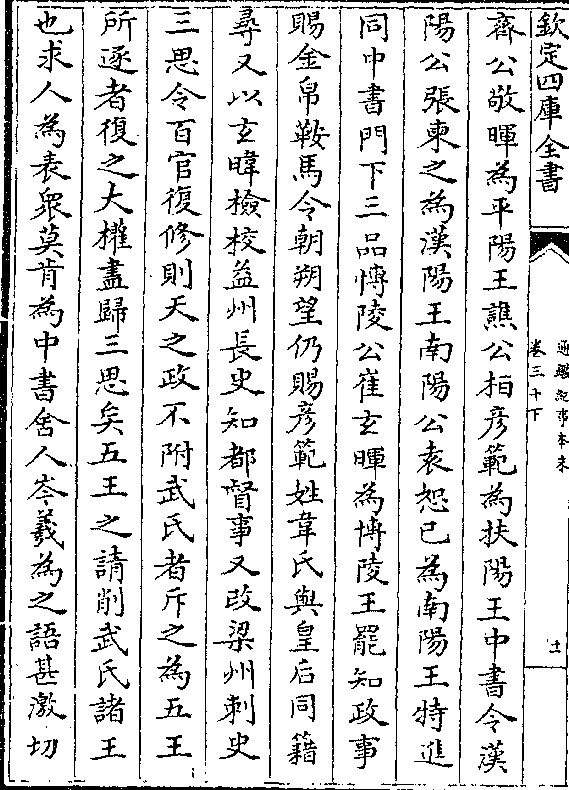 欽定四庫全書
通鑑紀事本末
卷三十下
十一
齊公敬暉為平陽王譙公桓彦範為扶陽王中書令漢
陽公張柬之為漢陽王南陽公袁恕已為南陽王特進
同中書門下三品博陵公崔玄暐為博陵王罷知政事
賜金帛鞍馬令朝朔望仍賜彦範姓韋氏與皇后同籍
尋又以玄暐檢校益州長史知都督事又改梁州刺史
三思令百官復修則天之政不附武氏者斥之為五王
所逐者復之大權盡歸三思矣五王之請削武氏諸王
也求人為表衆莫肯為中書舍人岑羲為之語甚激切